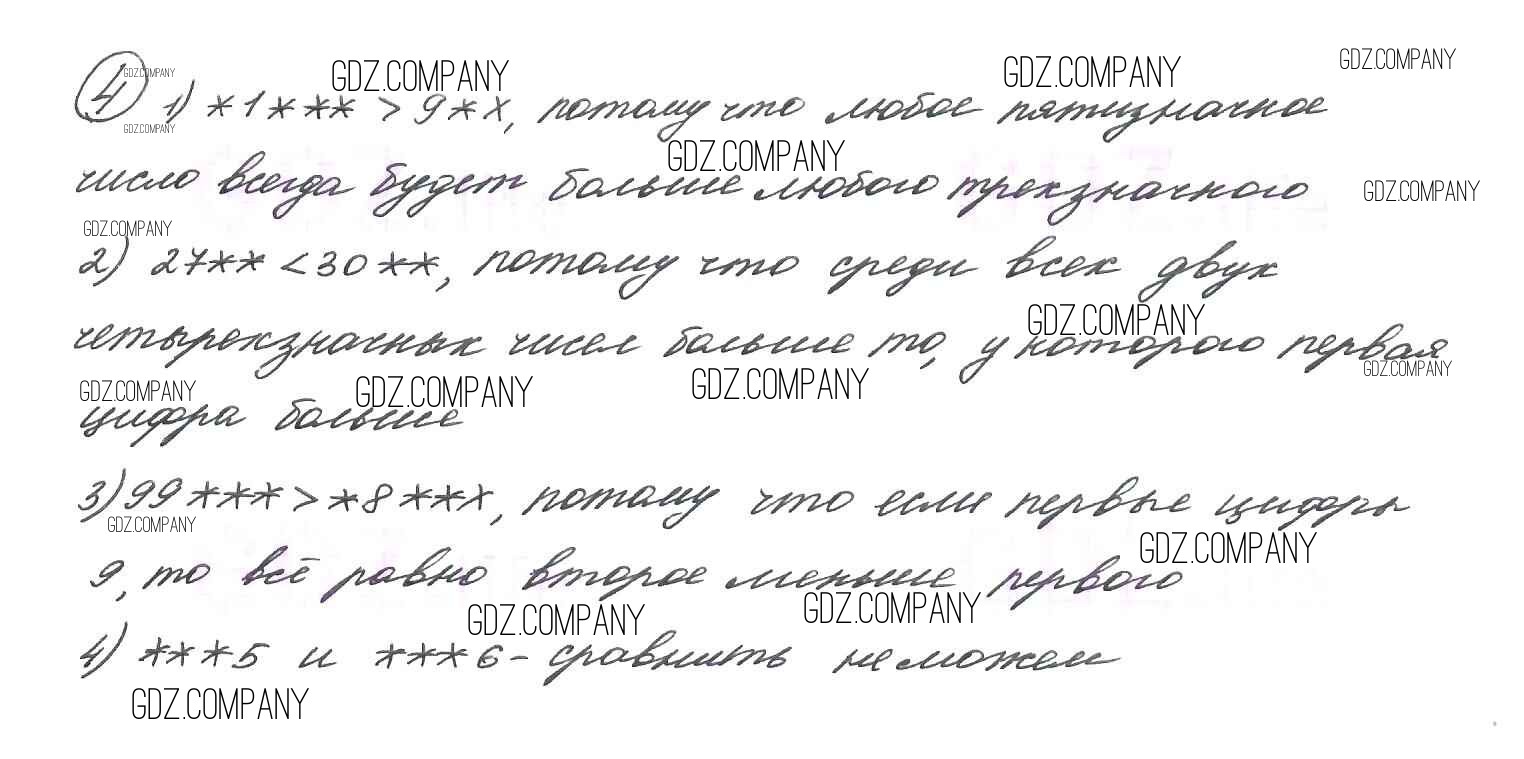 GDZ.COMPANY
GDZ.COMPANY GDZ.COMPANY GDZ.COMPANY
4 1) *1*** > 9*х, потому что любое пятизначное
GDZ.COMPANY
GDZ.COMPANY
число всегда будет больше любого трехзначного
GDZ.COMPANY
GDZ.COMPANY
2) 27** < 30**, потому что среди всех двух
GDZ.COMPANY
четырехзначных чисел больше то, у которого первая
GDZ.COMPANY
GDZ.COMPANY GDZ.COMPANY GDZ.COMPANY
цифра больше
3) 99*** > *8**х, потому что если первые цифры
GDZ.COMPANY
GDZ.COMPANY
9, то всё равно второе меньше первого
GDZ.COMPANY GDZ.COMPANY
4) ***5 и ***6 - сравнить не можем
GDZ.COMPANY